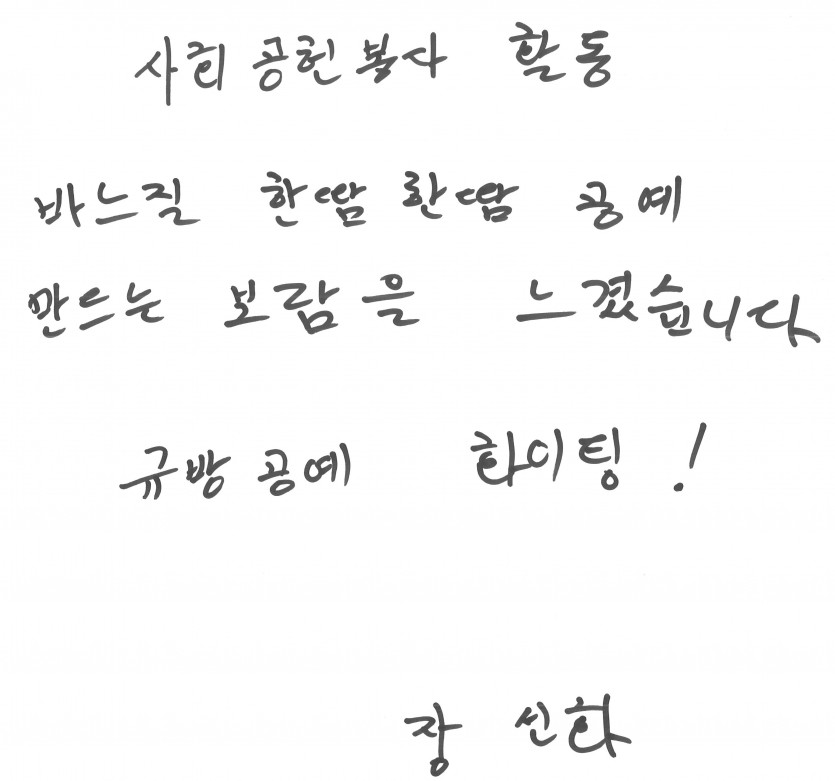 사회공헌봉사 활동
바느질 한땀 한땀 공예
만드는 보람을 느꼈습니다
규방공예 화이팅!
장 신화